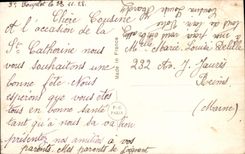 Chère Cousine
A l'occasion de la
Ste Catherine nous
vous souhaitons une
bonne fête. Nous
espérons que vous êtes
tous en bonne santé
tant qu'à nous sa va bon
présentez nos amitiés à vos
parents. Mes parents se joignent
Made in France
Melle Marie Louise Delille
232 Av. J. Jaurès
Reims
(Marne)